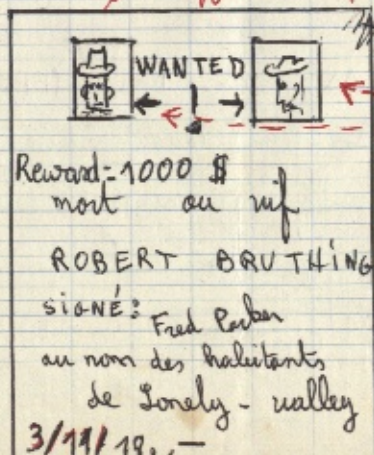 WANTED
Reward = 1000 $
mort ou vif
ROBERT BRUTHING
SIGNÉ: Fred Parker
au nom des habitants
de Lonely - valley
3/11/18.. —